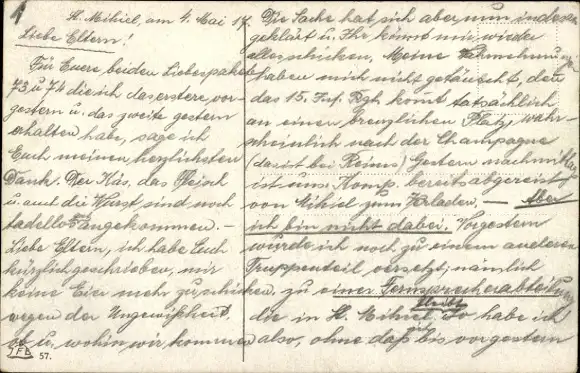 St. Mihiel, am 4. Mai 17.
Liebe Eltern!
Für Euere beiden Liebespakete
73 u. 74 die ich das erstere vor-
gestern u. das zweite gestern
erhalten habe, sage ich
Euch meinen herzlichsten
Dank. Der Käs, das Fleisch
u. auch die Wurst sind noch
tadellos angekommen. –
Liebe Eltern, ich habe Euch
kürzlich geschrieben, mir
keine Eier mehr zu schicken
wegen der Ungewißheit
ob u. wohin wir kommen
57.
Die Sache hat sich aber nun indessen
geklärt u. Ihr könnt mir wieder
alles schicken. Meine Wahrnehmungen
haben mich nicht getäuscht, den
das 15. Inf. Rgt. kommt tatsächlich
an einen Platz, wahr-
scheinlich nach der Champagne
(das ist bei Reims) Gestern nachmittag
ist uns. Komp. bereits abgereist
von Mihiel zum Verladen. – Aber
ich bin nicht dabei. Vorgestern
wurde ich noch zu einem anderen
Truppenteil versetzt, nämlich
zu einer Fernsprecherabteilung
bleibt
die in St. Mihiel. So habe ich
also, ohne daß bis vorgestern